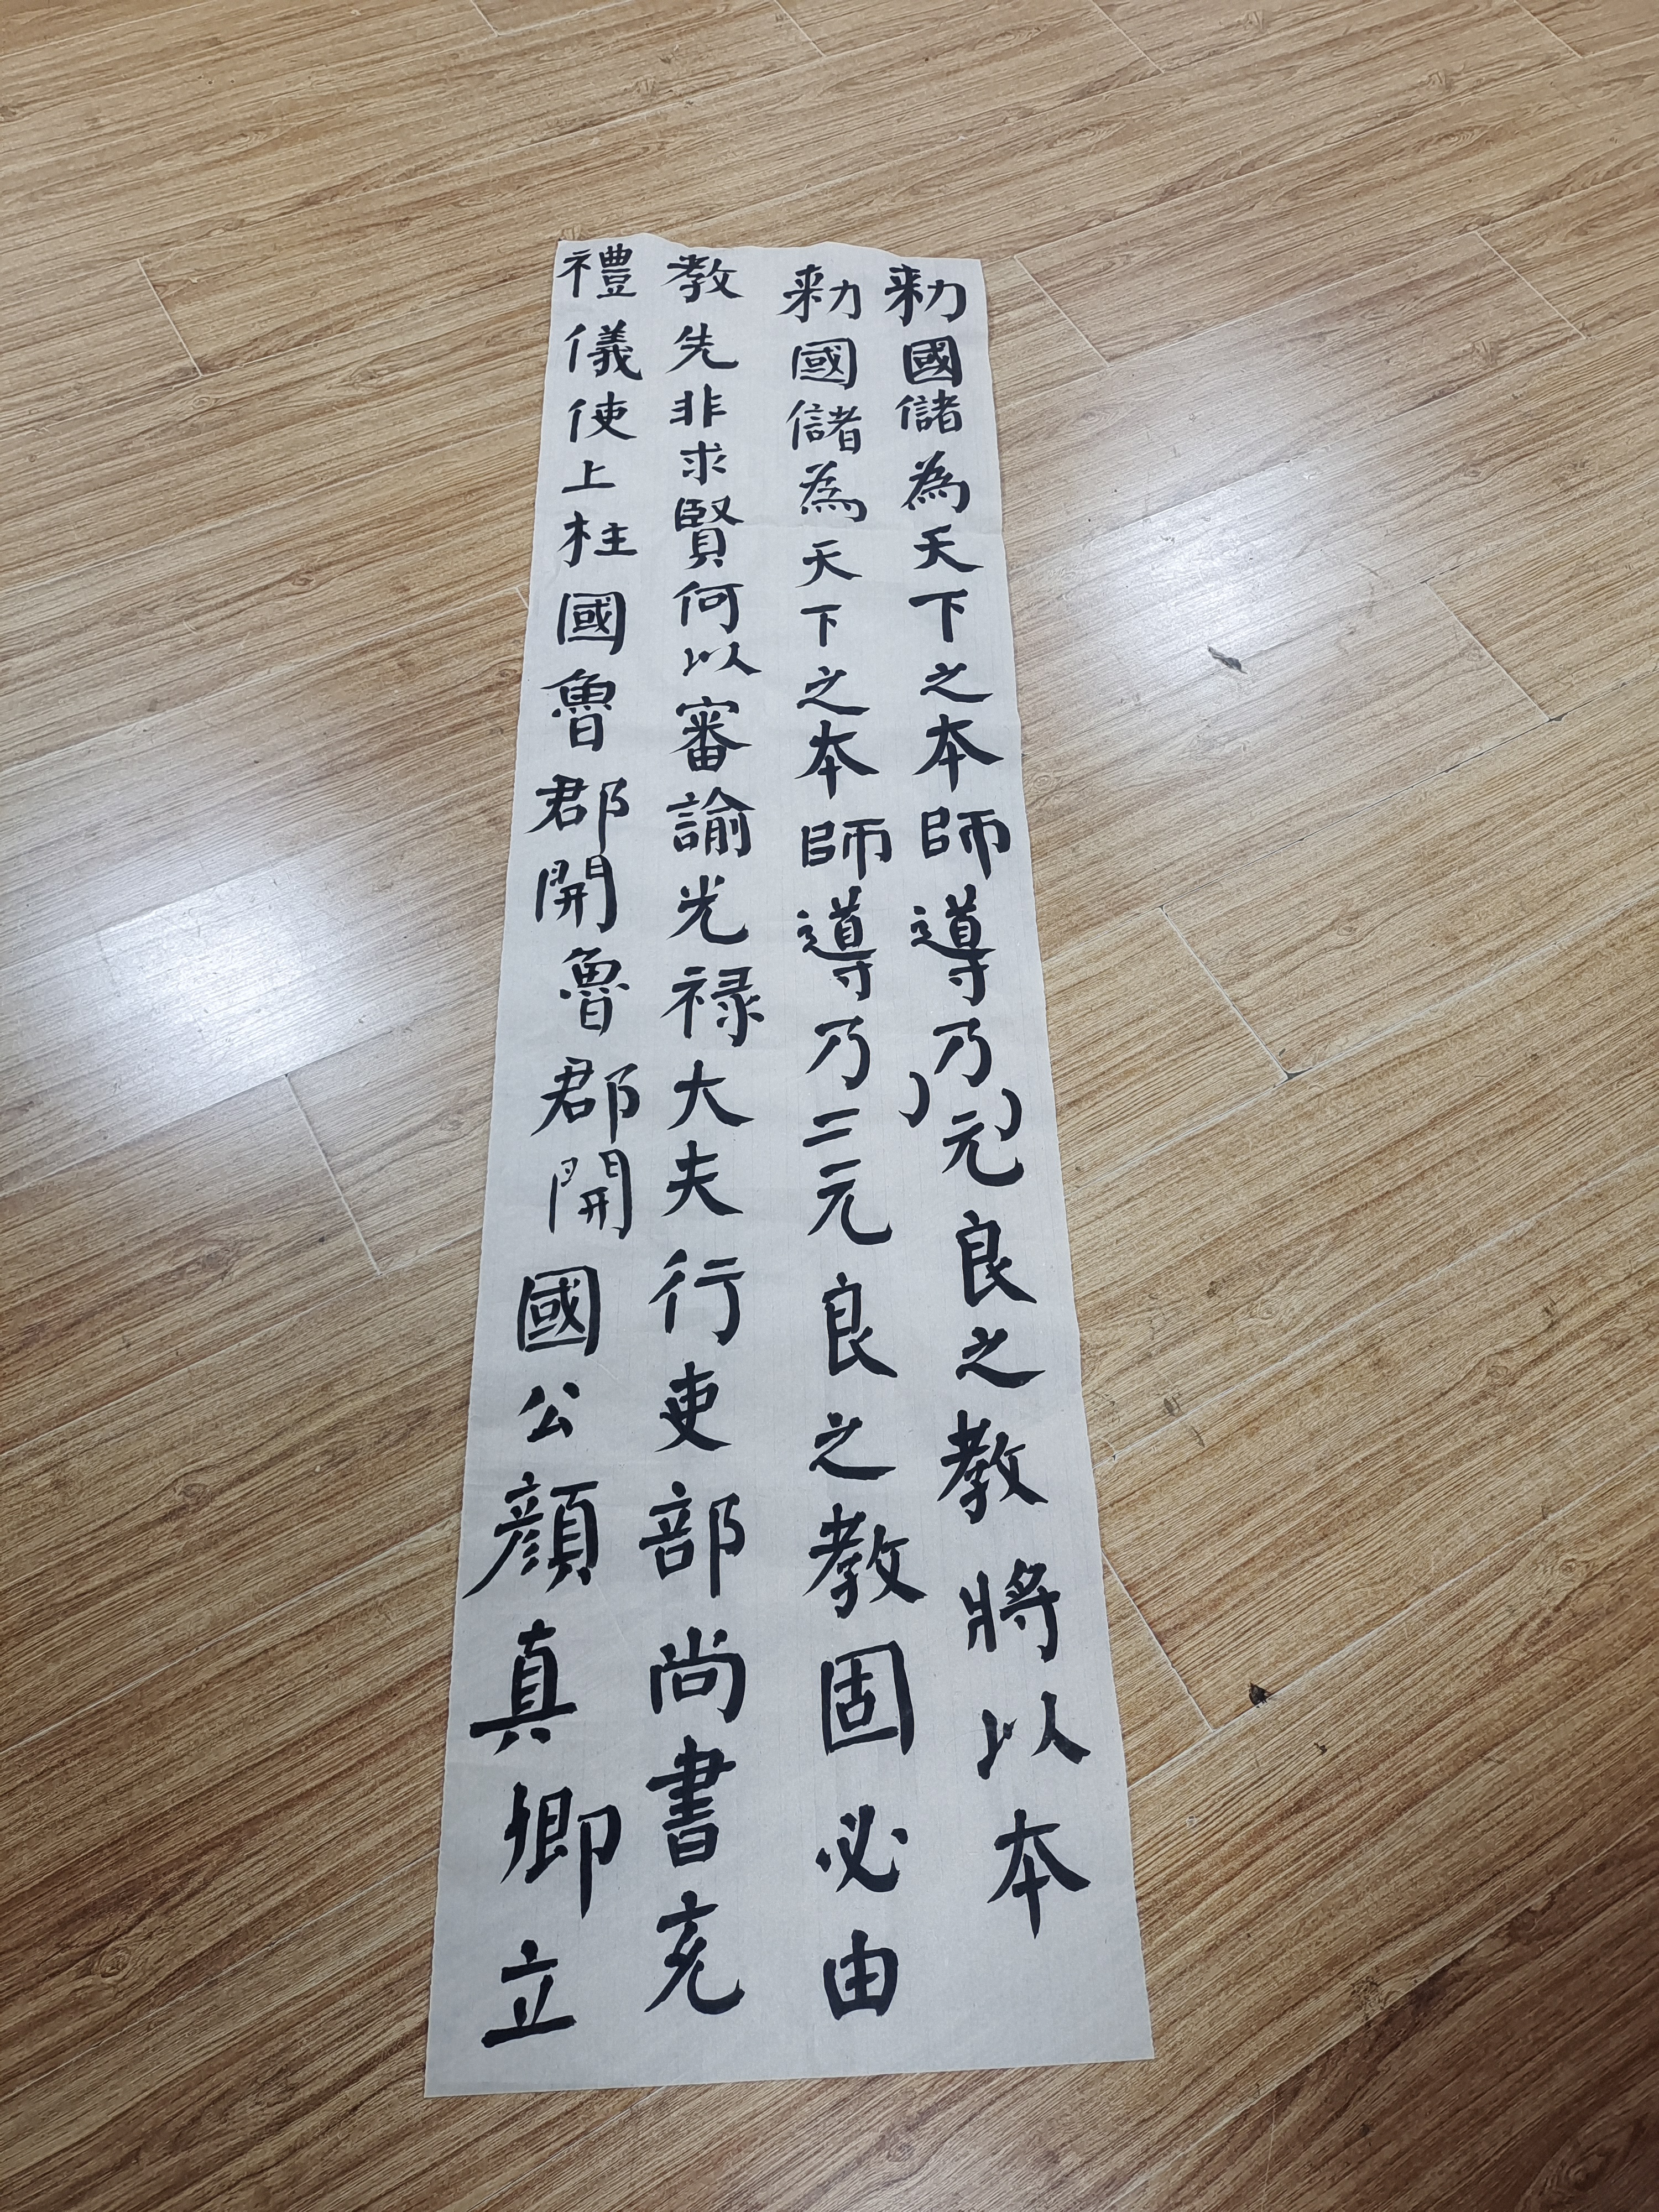 勑國儲為天下之本師導乃元良之教將以本
勑國儲為天下之本師導乃二元良之教固必由
教先非求賢何以審諭光禄大夫行吏部尚書充
禮儀使上柱國魯郡開魯郡開國公顔真卿立